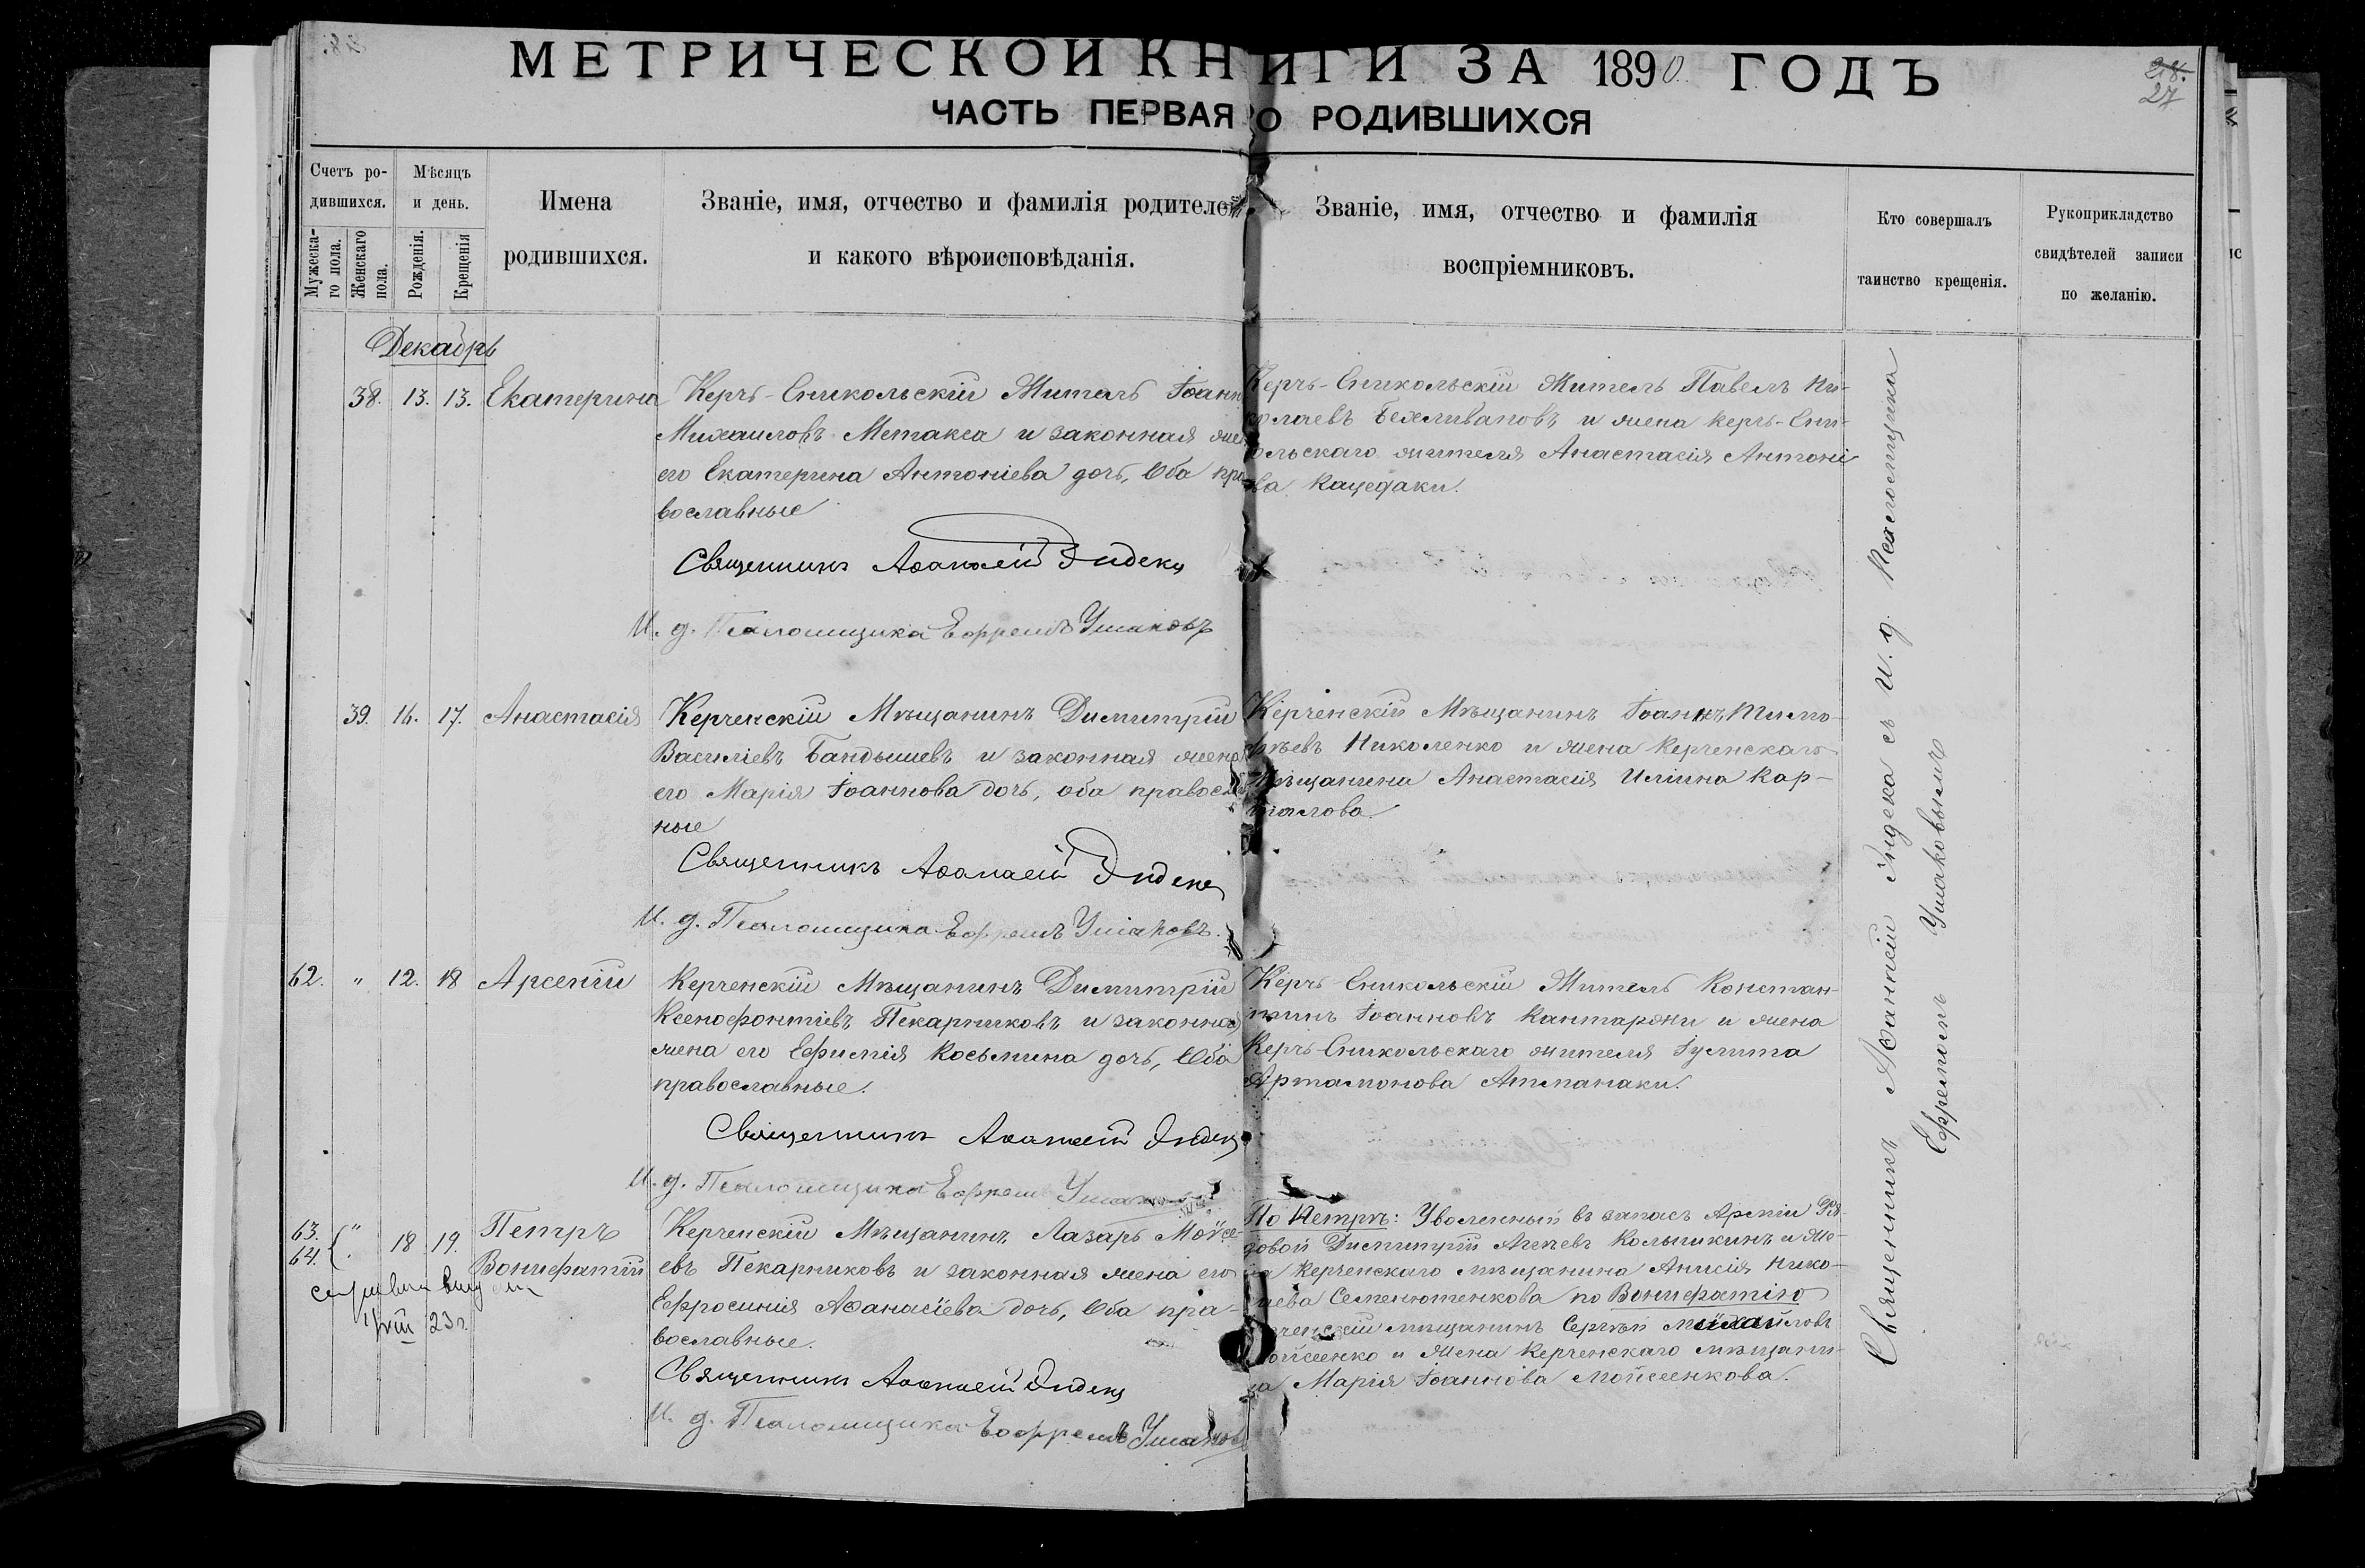 МЕТРИЧЕСКОЙ КНИГИ ЗА 1890. ГОДЪ
28.
27
ЧАСТЬ ПЕРВАЯ О РОДИВШИХСЯ
Счетъ ро-
дившихся.
Мужеска-
го пола.
Женскаго
пола.
Мѣсяцъ
и день.
Рожденія.
Крещенія
Имена
родившихся.
Званіе, имя, отчество и фамилія родителей
и какого вѣроисповѣданія.
Званіе, имя, отчество и фамилія
воспріемниковъ.
Кто совершалъ
таинство крещенія.
Рукоприкладство
свидѣтелей записи
по желанію.
Декабрь
38. 13. 13. Екатерина
Керчь-Еникольскій Житель Іоаннъ
Михаиловъ Метакса и законная жена
его Екатерина Антоніева дочь, Оба пра
вославные
Священникъ Аѳанасій Индекъ
И. д. Псаломщика Ефремъ Ушаковъ
Керчь-Еникольскій Житель Павелъ Ни-
колаевъ Бехливановъ и жена Керчь-Ени-
кольскаго жителя Анастасія Антоні
ева Кацедаки.
39. 16. 17. Анастасія
Керченскій Мѣщанинъ Димитрій
Василіевъ Бандышевъ и законная жена
его Марія Іоаннова дочь, оба православ
ные
Священникъ Аѳанасій Индекъ
И. д. Псаломщика Ефремъ Ушаковъ.
Керченскій Мѣщанинъ Іоаннъ Тимо-
ѳѣевъ Николенко и жена Керченскаго
Мѣщанина Анастасія Иліина Кар-
талова.
62. " 12. 18 Арсеній
Керченскій Мѣщанинъ Димитрій
Ксенофонтіевъ Пекарниковъ и законная
жена его Ефимія Косьмина дочь, Оба
православные.
Священникъ Аѳанасій Индекъ
И. д. Псаломщика Ефремъ Ушаковъ
Керчь-Еникольскій Житель Констан-
тинъ Іоанновъ Кантаржи и жена
Керчь-Еникольскаго жителя Іулита
Артамонова Атманаки.
63.
64. " 18 19. Петръ
Вонифатій
23 г.
Керченскій Мѣщанинъ Лазарь Мойсе-
евъ Пекарниковъ и законная жена его
Ефросинія Аѳанасіева дочь, Оба пра-
вославные.
Священникъ Аѳанасій Индекъ
И. д. Псаломщика Ефремъ Ушаковъ
По Петрѣ: Уволенный въ запасъ Арміи Ря-
довой Димитрій Колычикинъ и же-
на Керченскаго мѣщанина Анисія Нико-
лаева Семенютенкова по Вонифатію
Керченскій мѣщанинъ Сергѣй Михайловъ
Мойсеенко и Жена Керченскаго мѣщани-
на Марія Іоаннова Мойсеенкова.
Священникъ Аѳанасій Индека съ И. д. Псаломщика
Ефремомъ Ушаковымъ